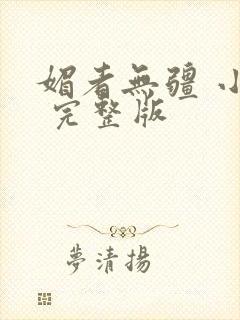 媚者無疆 小
完整版
夢清揚